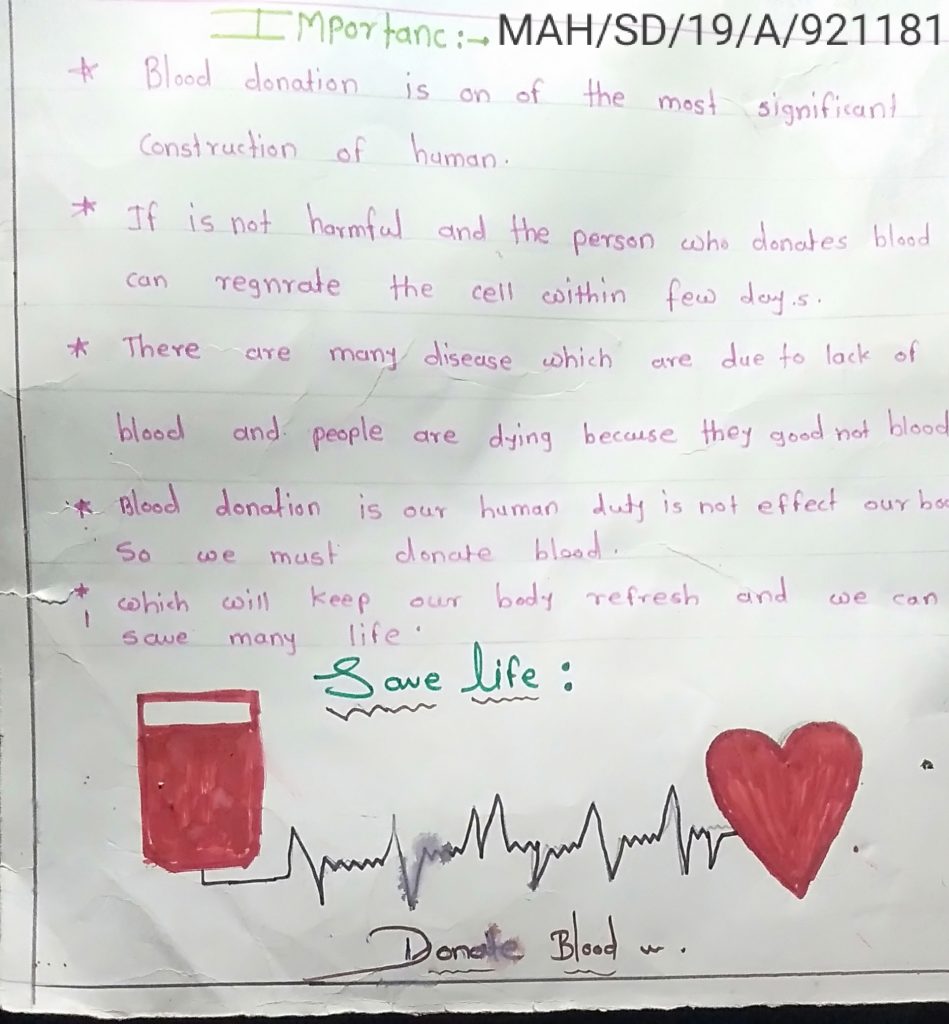 Importanc:→ MAH/SD/19/A/921181
* Blood donation is on of the most significant
construction of human.
* If is not harmful and the person who donates blood
can regnrate the cell within few day.s.
* There are many disease which are due to lack of
blood and people are dying because they good not blood
* Blood donation is our human duty is not effect our bo
So we must donate blood.
* which will keep our body refresh and we can
save many life.
Save life:
Donate Blood